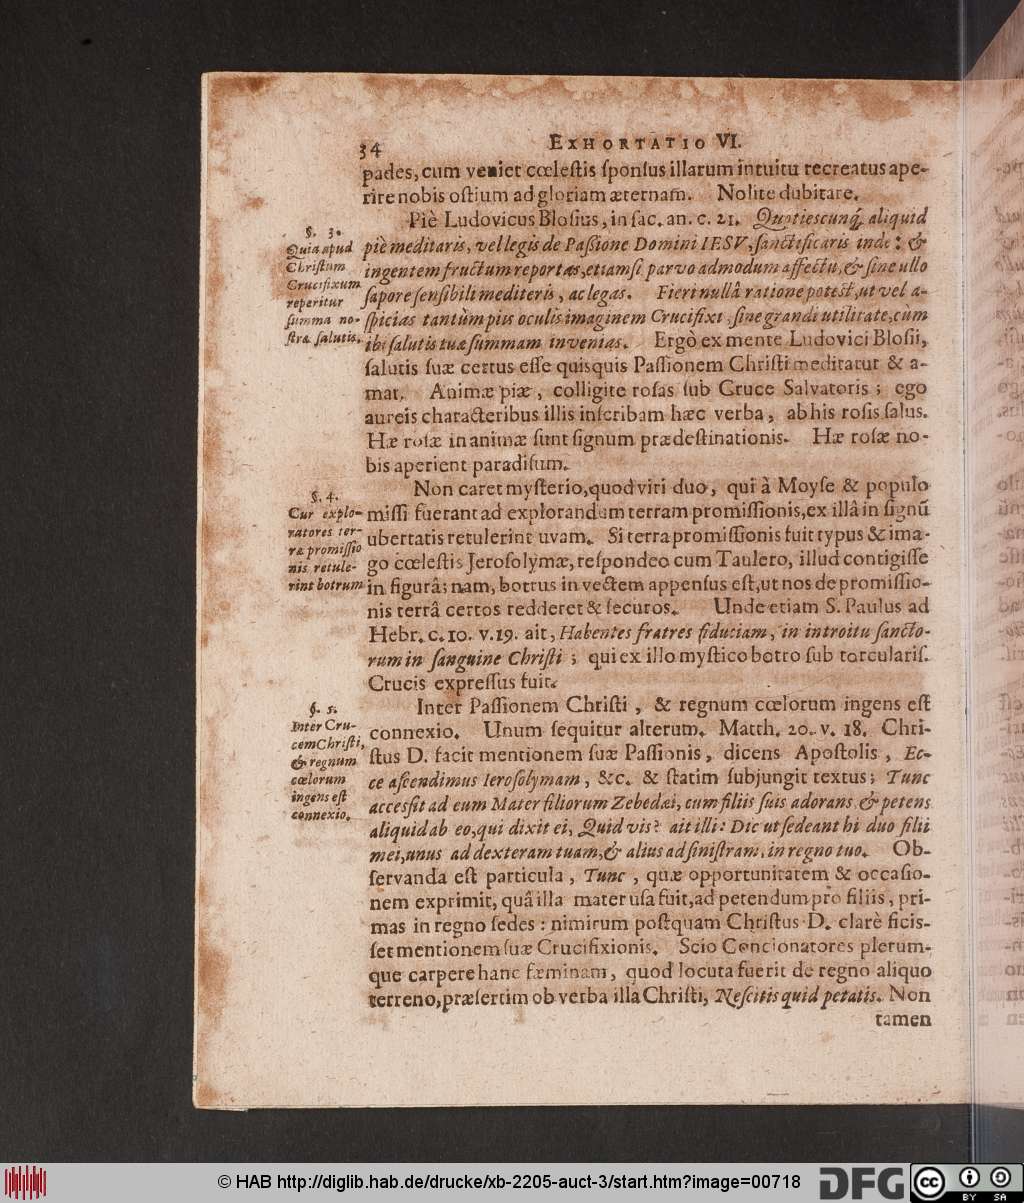 34
EXHORTATIO VI.
pades, cum veniet cœlestis sponsus illarum intuitu recreatus ape-
rire nobis ostium ad gloriam æternam. Nolite dubitare.
§. 3.
Quia apud
Christum
Crucifixum
reperitur
summa no-
stra salutis.
Piè Ludovicus Blosius, in sac. an. c. 21. Quotiescunq́, aliquid
piè meditaris, vel legis de Passione Domini IESV, sanctificaris inde: &
ingentem fructum reportas, etiamsi parvo admodum affectu, & sine ullo
sapore sensibili mediteris, ac legas. Fieri nullâ ratione potest, ut vel a-
spicias tantùm piis oculis imaginem Crucifixi, sine grandi utilitate, cùm
ibi salutis tuæ summam invenias. Ergò ex mente Ludovici Blosii,
salutis suæ certus esse quisquis Passionem Christi meditatur & a-
mat. Animæ piæ, colligite rosas sub Cruce Salvatoris; ego
aureis characteribus illis inscribam hæc verba, ab his rosis salus.
Hæ rosæ in animæ sunt signum prædestinationis. Hæ rosæ no-
bis aperient paradisum.
§. 4.
Cur explo-
ratores ter-
ræ promissio
nis retule-
rint botrum
Non caret mysterio, quod viri duo, qui à Moyse & populo
missi fuerant ad explorandum terram promissionis, ex illâ in signũ
ubertatis retulerint uvam. Si terra promissionis fuit typus & ima-
go cœlestis Jerosolymæ, respondeo cum Taulero, illud contigisse
in figurâ; nam, botrus in vectem appensus est, ut nos de promissio-
nis terrâ certos redderet & securos. Unde etiam S. Paulus ad
Hebr. c. 10. v. 19. ait, Habentes fratres fiduciam, in introitu sancto-
rum in sanguine Christi; qui ex illo mystico botro sub torcularis.
Crucis expressus fuit.
§. 5.
Inter Cru-
cem Christi,
& regnum
cœlorum
ingens est
connexio.
Inter Passionem Christi, & regnum cœlorum ingens est
connexio. Unum sequitur alterum. Matth. 20. v. 18. Chri-
stus D. facit mentionem suæ Passionis, dicens Apostolis, Ec-
ce ascendimus Ierosolymam, &c. & statim subjungit textus; Tunc
accessit ad eum Mater filiorum Zebedæi, cum filiis suis adorans & petens
aliquid ab eo, qui dixit ei, Quid vis? ait illi: Dic ut sedeant hi duo filii
mei, unus ad dexteram tuam, & alius ad sinistram, in regno tuo. Ob-
servanda est particula, Tunc, quæ opportunitatem & occasio-
nem exprimit, quâ illa mater usa fuit, ad petendum pro filiis, pri-
mas in regno sedes: nimirum postquam Christus D. clarè ficis-
set mentionem suæ Crucifixionis. Scio Concionatores plerum-
que carpere hanc fæminam, quod locuta fuerit de regno aliquo
terreno, præsertim ob verba illa Christi, Nescitis quid petatis. Non
tamen
© HAB http://diglib.hab.de/drucke/xb-2205-auct-3/start.htm?image=00718
DFG
cc
BY SA